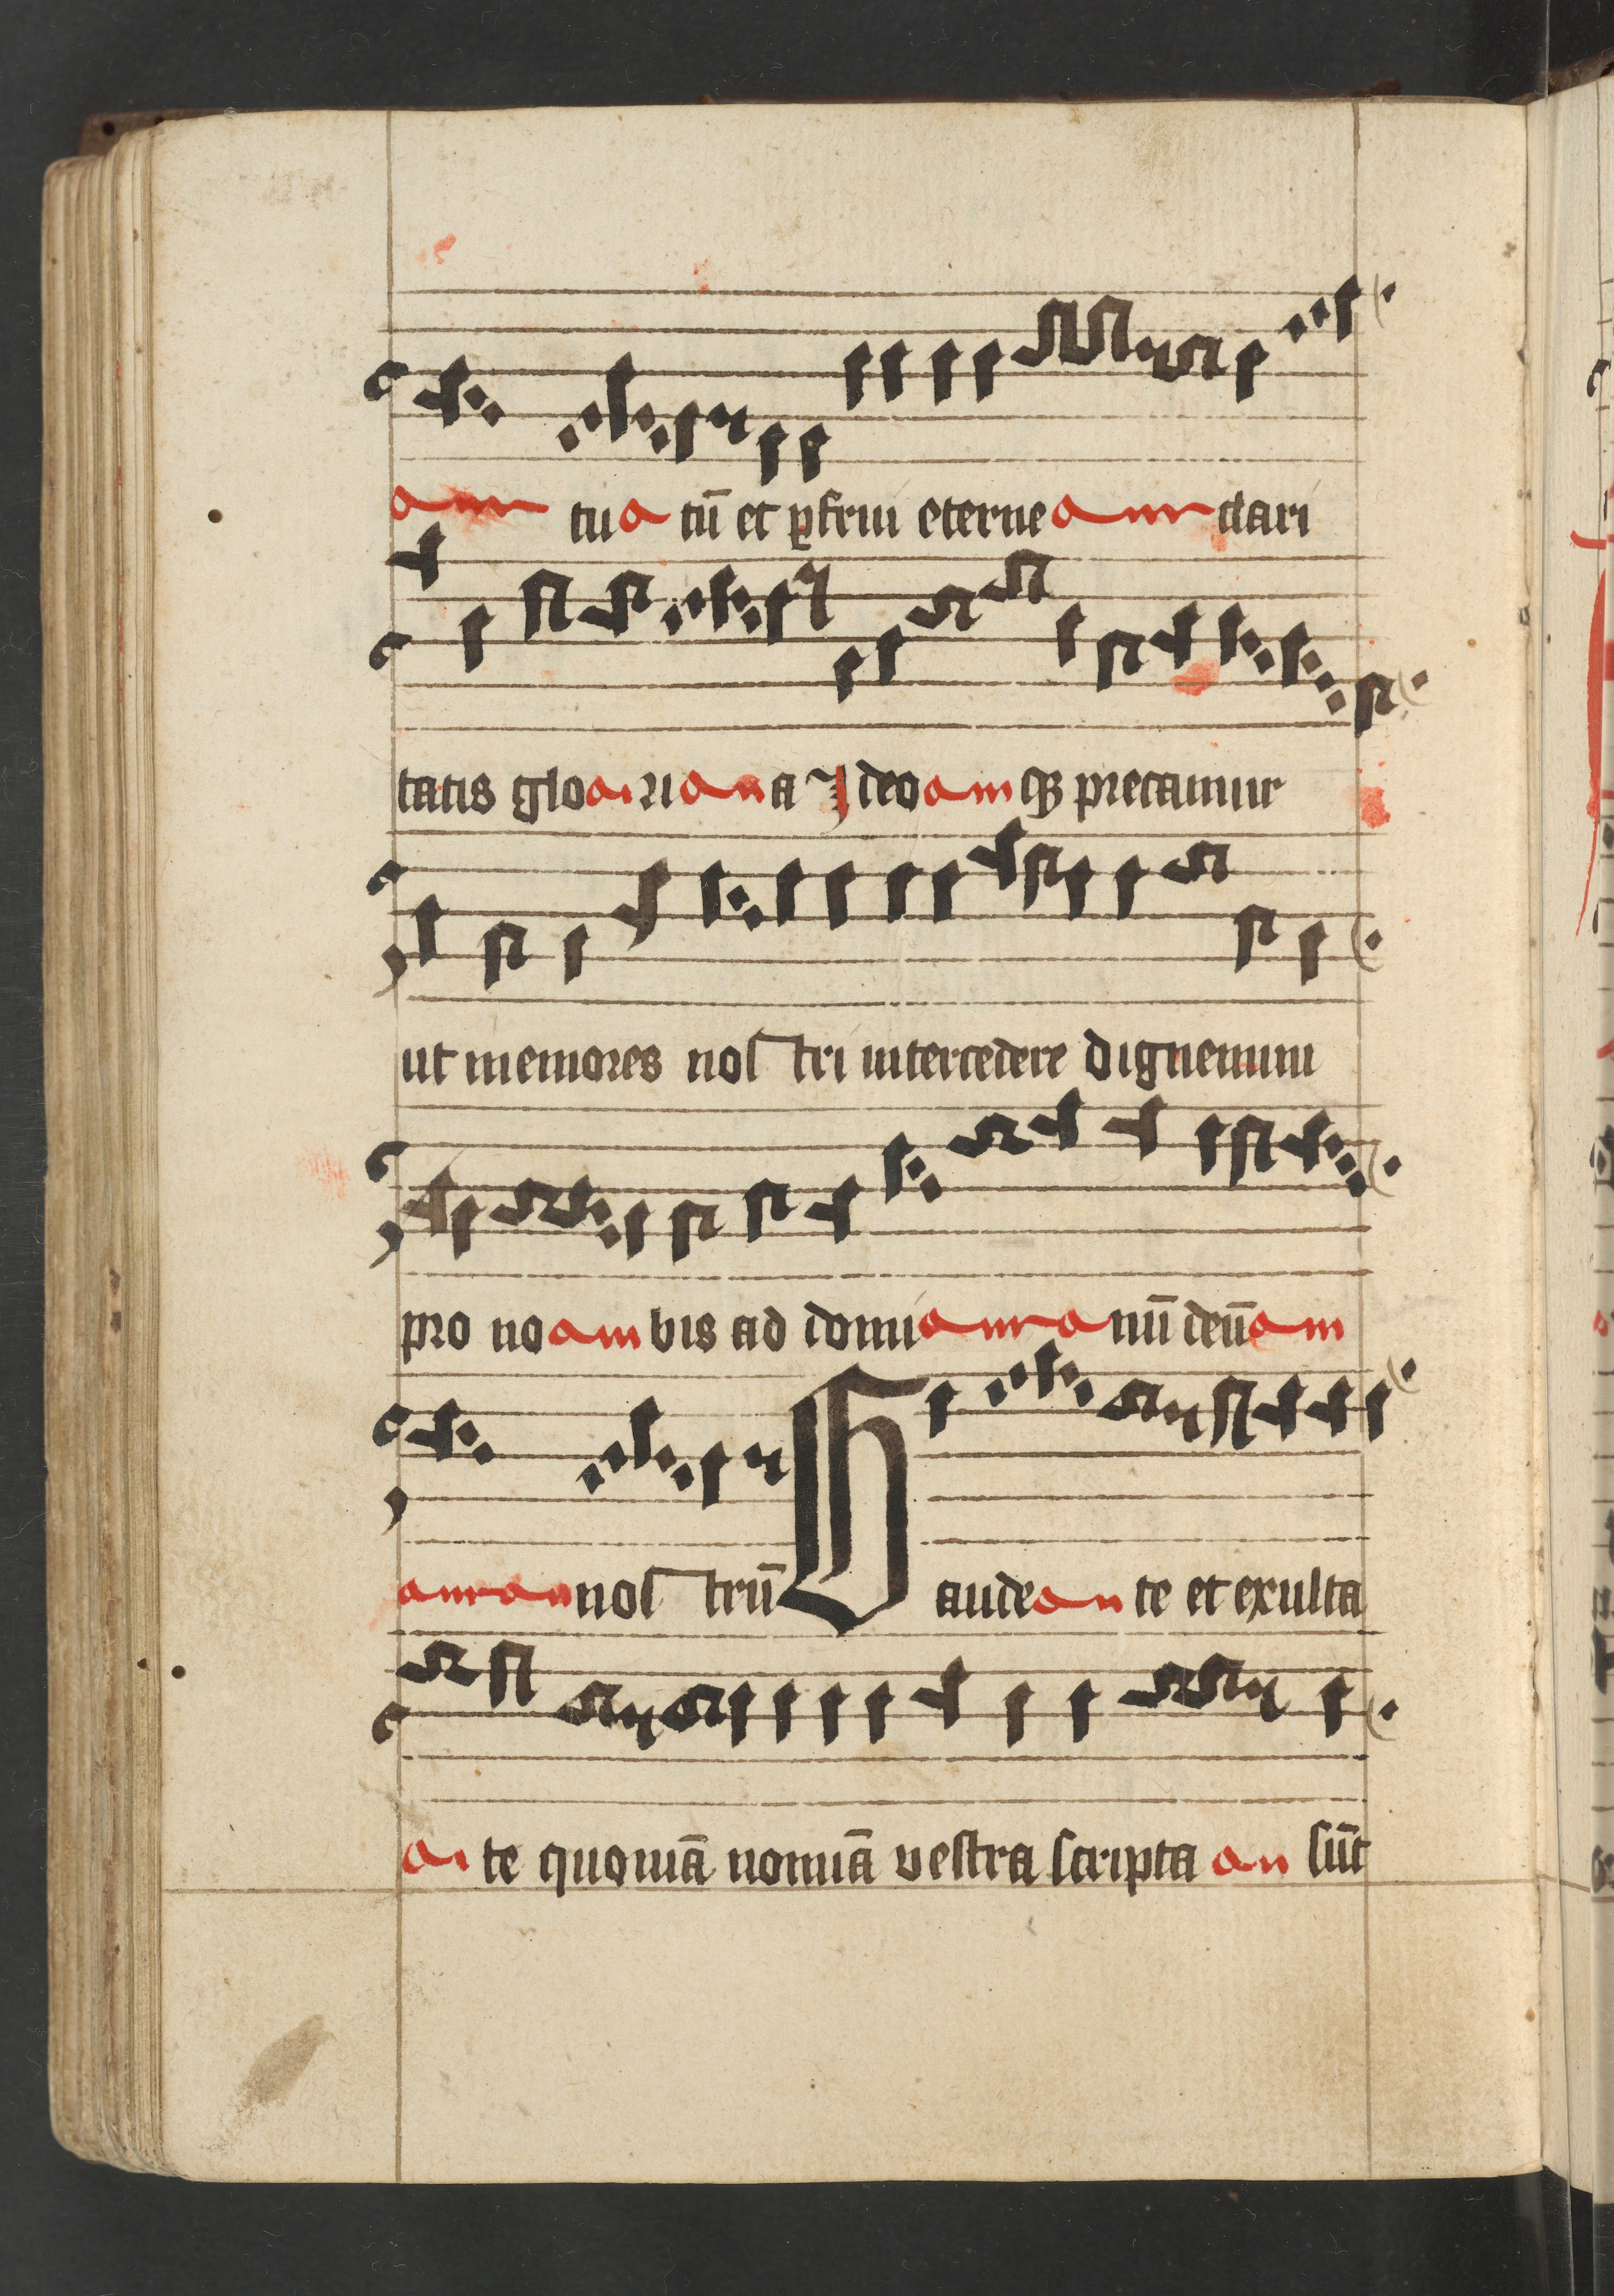 amr tua tū et ꝑfrui eterne amr clari
tatis gloairiana Ideoamqꝫ precamur
ut memores noſtri intercedere dignemini
pro noambis ad domiamranū deūam
amrannoſtrū Gaudeante et exulta
aite quoniā nomīa veſtra ſcripta an ſūt